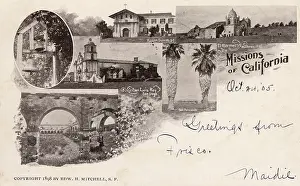 Missions
of California
Oct. 24, 05.
Greetings from
Frisco.
Maidie
COPYRIGHT 1898 BY EDW. H. MITCHELL, S. F.